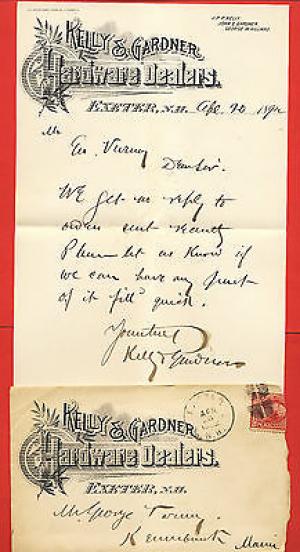 J. P. P. KELLY.
JOHN E. GARDNER.
GEORGE W. HILLIARD.
KELLY & GARDNER,
Hardware Dealers.
EXETER, N.H. Apl 20 189
Mr
Geo. Varney
Dear Sir.
We get no reply to
order sent recently
Please let us know if
we can have any part
of it fill'd quick.
Yours truly
Kelly & Gardner
KELLY & GARDNER,
Hardware Dealers.
EXETER, N.H.
APR
N.H.
Mr. George Varney
Kennebunk
Maine